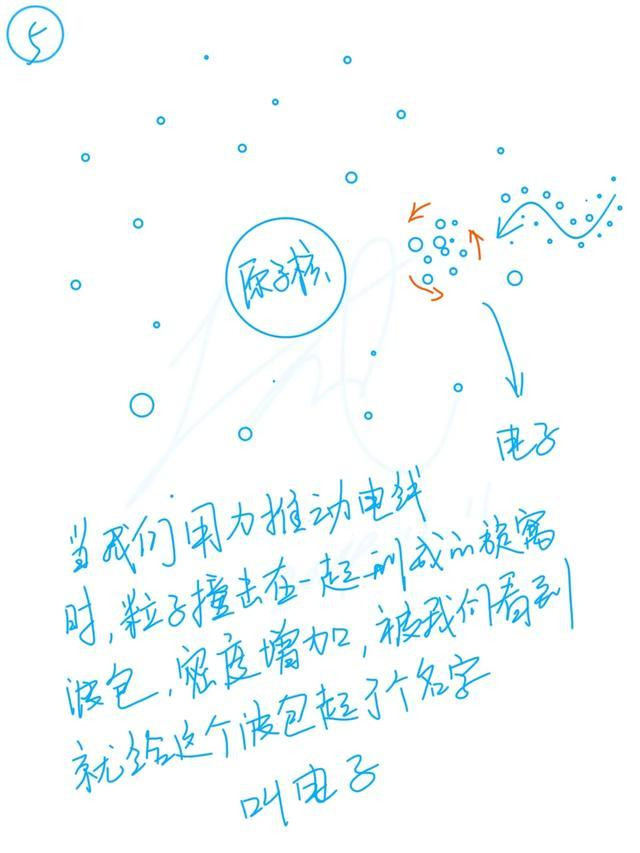 5
原子核
电子
当我们用力推动电线
时,粒子撞击在一起形成的旋窝
波包,密度增加,被我们看到
就给这个波包起了个名字
叫电子